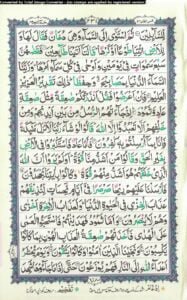 Converted by Total Image Converter - (no stamps are applied by registered version)
لِّلسَّآئِلِیْنَ ثُمَّ اسْتَوٰۤی اِلَی السَّمَآءِ وَهِیَ دُخَانٌ فَقَالَ لَهَا وَ
لِلْاَرْضِ ائْتِیَا طَوْعًا اَوْ كَرْهًا قَالَتَاۤ اَتَیْنَا طَآئِعِیْنَ فَقَضٰىهُنَّ
سَبْعَ سَمٰوَاتٍ فِیْ یَوْمَیْنِ وَاَوْحٰی فِیْ كُلِّ سَمَآءٍ اَمْرَهَا وَزَیَّنَّا
السَّمَآءَ الدُّنْیَا بِمَصَابِیْحَ وَحِفْظًا ذٰلِكَ تَقْدِیْرُ
الْعَزِیْزِ الْعَلِیْمِ فَاِنْ اَعْرَضُوْا فَقُلْ اَنْذَرْتُكُمْ صٰعِقَةً مِّثْلَ صٰعِقَةِ
عَادٍ وَّثَمُوْدَ اِذْ جَآءَتْهُمُ الرُّسُلُ مِنْۢ بَیْنِ اَیْدِیْهِمْ وَمِنْ
خَلْفِهِمْ اَلَّا تَعْبُدُوْۤا اِلَّا اللّٰهَ قَالُوْا لَوْ شَآءَ رَبُّنَا لَاَنْزَلَ مَلٰٓئِكَةً
فَاِنَّا بِمَاۤ اُرْسِلْتُمْ بِهٖ كٰفِرُوْنَ فَاَمَّا عَادٌ فَاسْتَكْبَرُوْا فِی الْاَرْضِ
بِغَیْرِ الْحَقِّ وَقَالُوْا مَنْ اَشَدُّ مِنَّا قُوَّةً اَوَلَمْ یَرَوْا اَنَّ اللّٰهَ
الَّذِیْ خَلَقَهُمْ هُوَ اَشَدُّ مِنْهُمْ قُوَّةً وَكَانُوْا بِاٰیٰتِنَا یَجْحَدُوْنَ
فَاَرْسَلْنَا عَلَیْهِمْ رِیْحًا صَرْصَرًا فِیْۤ اَیَّامٍ نَّحِسَاتٍ لِّنُذِیْقَهُمْ
عَذَابَ الْخِزْیِ فِی الْحَیٰوةِ الدُّنْیَا وَلَعَذَابُ الْاٰخِرَةِ اَخْزٰی
وَهُمْ لَا یُنْصَرُوْنَ وَاَمَّا ثَمُوْدُ فَهَدَیْنٰهُمْ فَاسْتَحَبُّوا الْعَمٰی
عَلَی الْهُدٰی فَاَخَذَتْهُمْ صٰعِقَةُ الْعَذَابِ الْهُوْنِ بِمَا كَانُوْا
یَكْسِبُوْنَ وَنَجَّیْنَا الَّذِیْنَ اٰمَنُوْا وَكَانُوْا یَتَّقُوْنَ وَیَوْمَ یُحْشَرُ
اَعْدَآءُ اللّٰهِ اِلَی النَّارِ فَهُمْ یُوْزَعُوْنَ حَتّٰۤی اِذَا مَا جَآءُوْهَا شَهِدَ